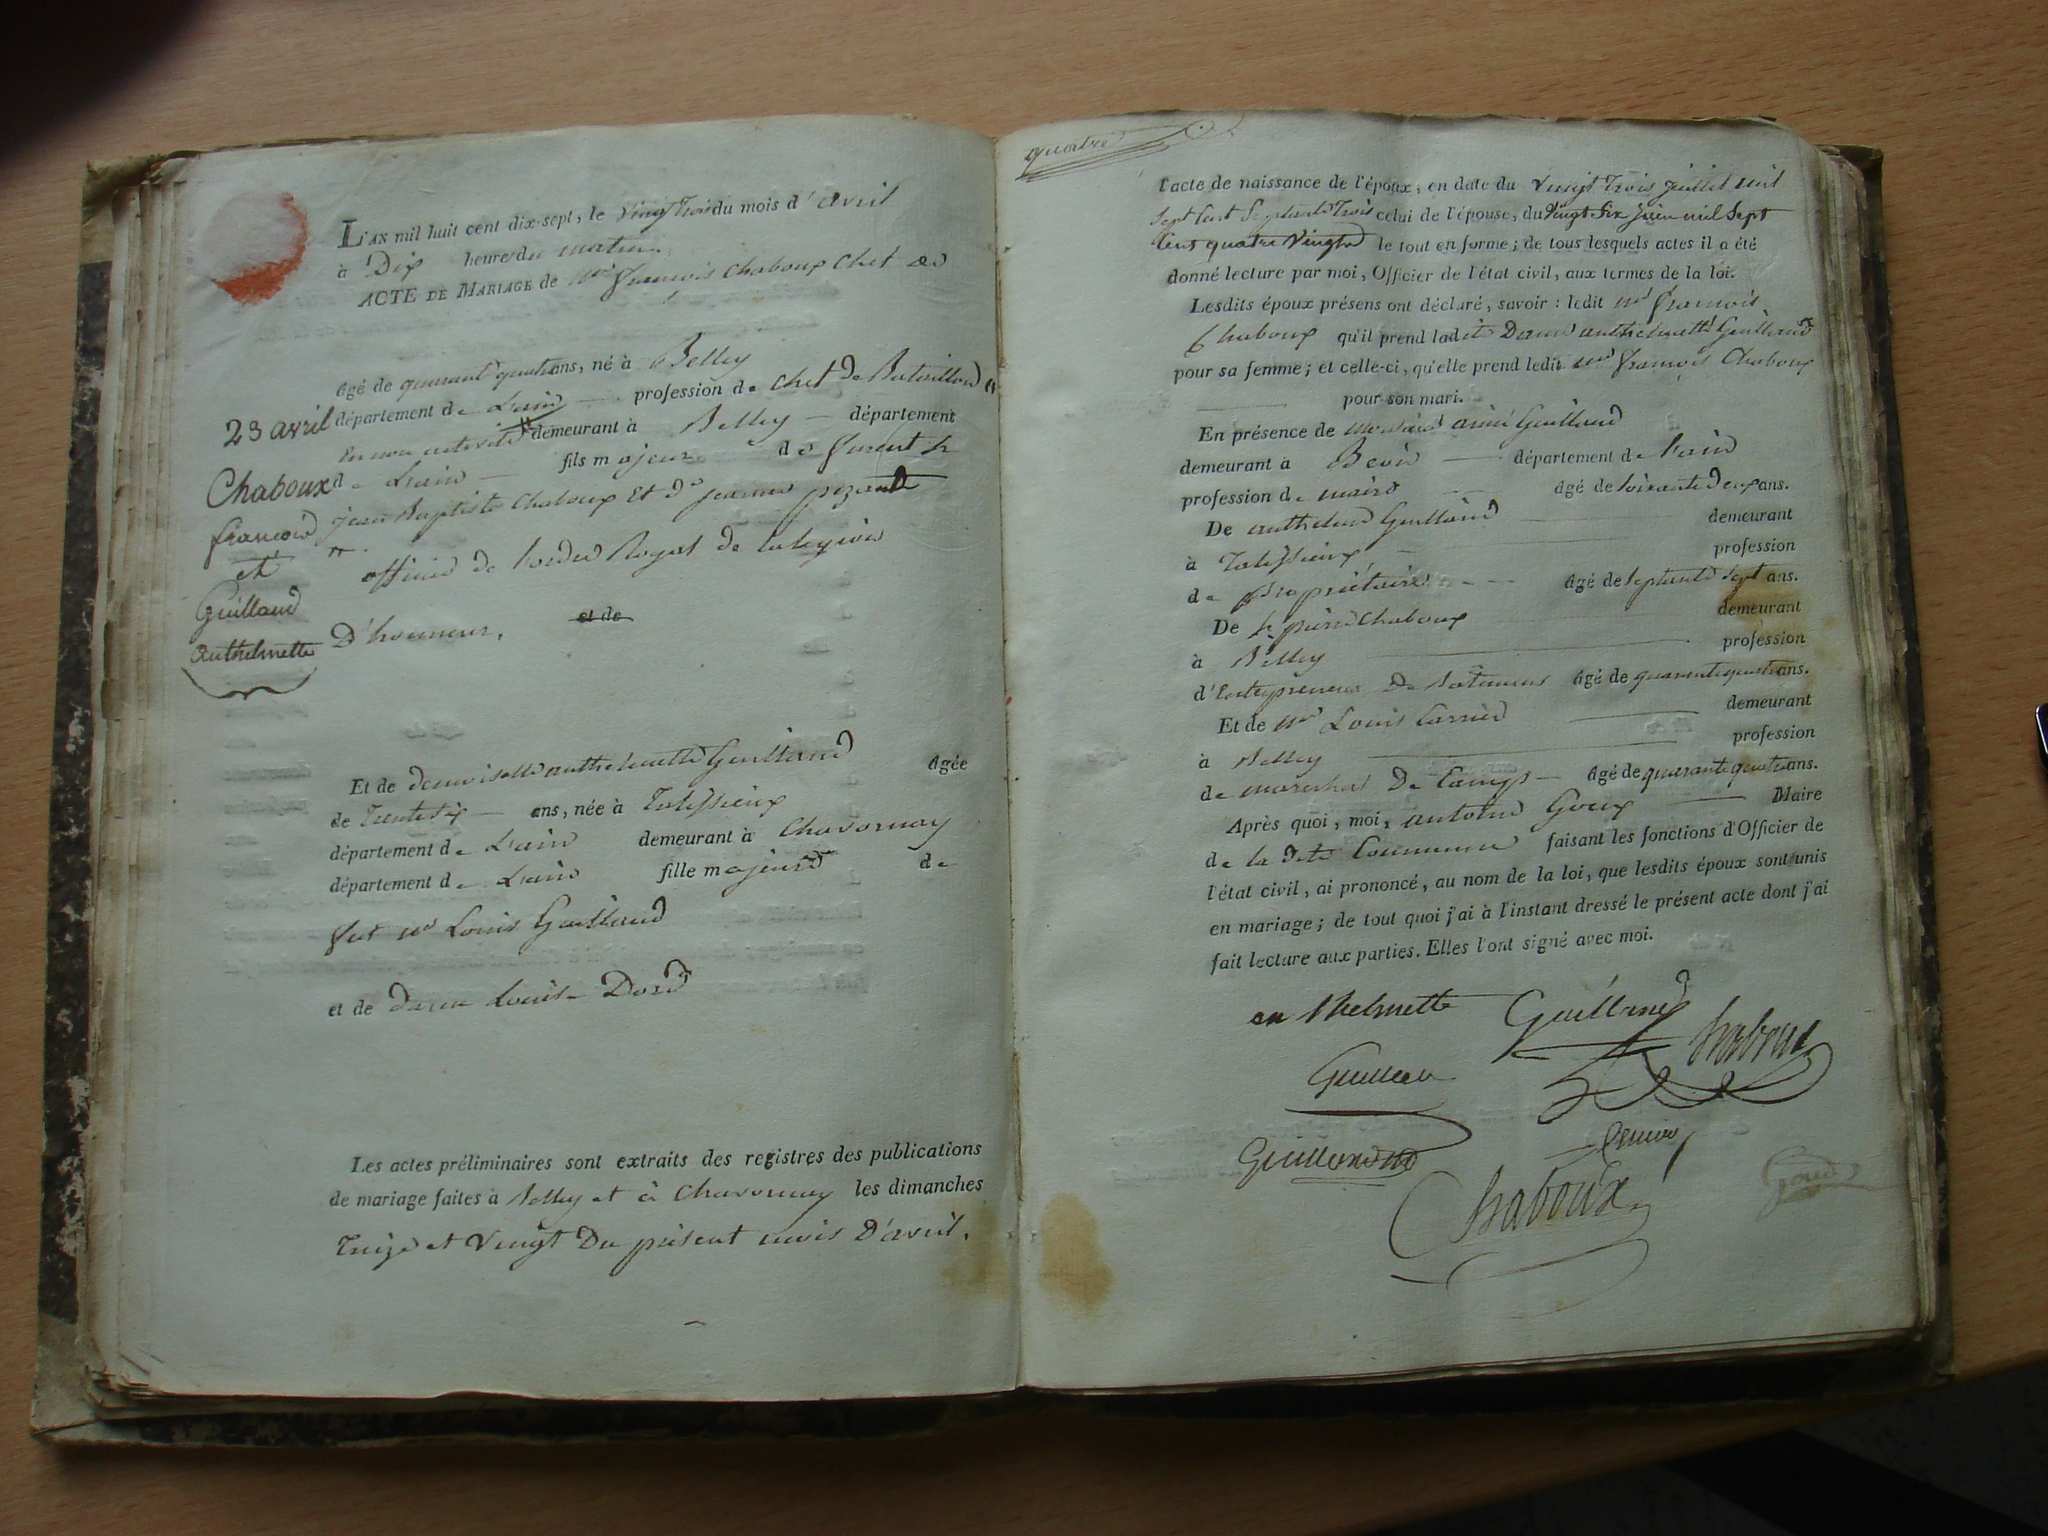 L'AN mil huit cent dix-sept, le vingt Trois du mois d'avril
à Dix heures du matin
ACTE DE MARIAGE de Mr françois Chaboux Chef de
âgé de quarante quatre ans, né à Belley
département de L'ain profession de chef de Bataillon
en non activité demeurant à Belley département
de L'ain fils majeur de furent Sr
jean Baptiste Chaboux Et De jeanne
officier de l'ordre Royal de la légion
D'honneur. et de
23 avril
Chaboux
françois
et
Guilland
Anthelmette
Et de demoiselle anthelmette Guilland âgée
de Trente six ans, née à Talissieux
département de L'ain demeurant à Chavornay
département de L'ain fille majeure de
fut Mr Louis Guilland
et de Dame Louise Dord
Les actes préliminaires sont extraits des registres des publications
de mariage faites à Belley et à Chavornay les dimanches
Treize et Vingt Du présent mois D'avril.
quatre
l'acte de naissance de l'époux, en date du vingt Trois juillet mil
Sept Cent Septante Trois celui de l'épouse, du Vingt Six juin mil Sept
Cent quatre Vingt le tout en forme; de tous lesquels actes il a été
donné lecture par moi, Officier de l'état civil, aux termes de la loi.
Lesdits époux présens ont déclaré, savoir : ledit Mr françois
Chaboux qu'il prend ladite Dame anthelmette Guilland
pour sa femme; et celle-ci, qu'elle prend ledit Mr françois Chaboux
pour son mari.
En présence de Monsieur aimé Guilland
demeurant à Béon département de L'ain
profession de maire âgé de soixante deux ans.
De anthelme Guilland demeurant
à Talissieux profession
de propriétaire âgé de Septante Sept ans.
De Sr pierre Chaboux demeurant
à Belley profession
d'Entrepreneur De Batimens âgé de quarante quatre ans.
Et de Mr Louis Carrier demeurant
à Belley profession
de marechal De Camp âgé de quarante quatre ans.
Après quoi, moi, antoine Goux Maire
de la dite Commune faisant les fonctions d'Officier de
l'état civil, ai prononcé, au nom de la loi, que lesdits époux sont unis
en mariage; de tout quoi j'ai à l'instant dressé le présent acte dont j'ai
fait lecture aux parties. Elles l'ont signé avec moi.
anthelmette Guilland Chaboux
Guilland
Guilland
Chaboux